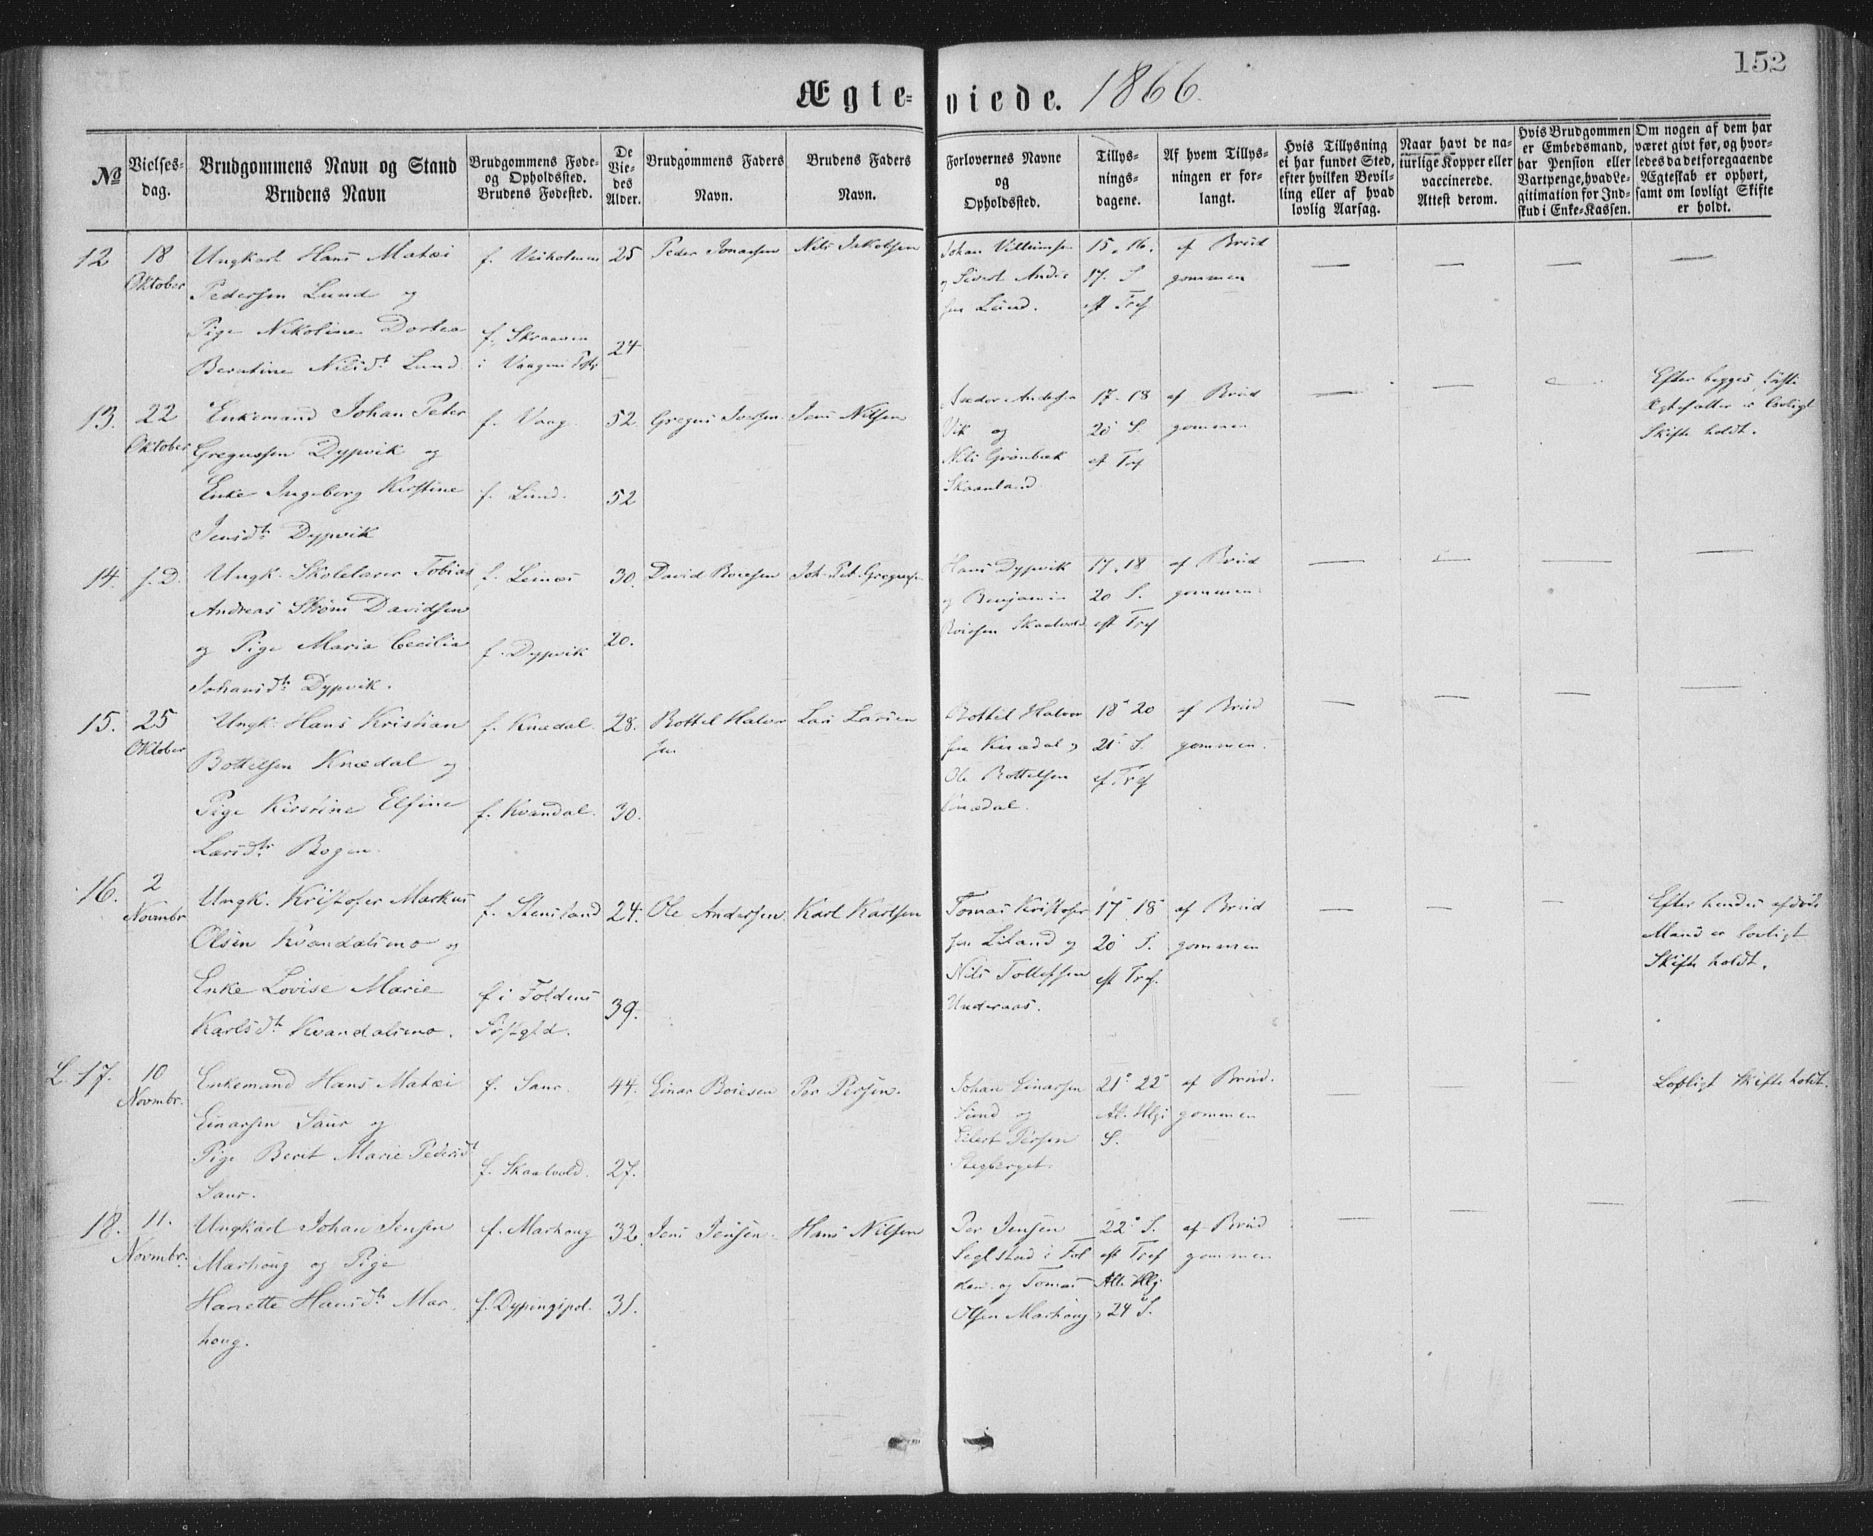 152
Ægteviede. 1866.
№
Vielsesdag.
Brudgommens Navn og Stand
Brudens Navn
Brudgommens Føde- og Opholdssted.
Brudens Fødested.
De Viedes Alder.
Brudgommens Faders Navn.
Brudens Faders Navn.
Forlovernes Navne og Opholdssted.
Tillysningsdagene.
Af hvem Tillysningen er forlangt.
Hvis Tillysning ei har fundet Sted, efter hvilken Bevilling eller af hvad lovlig Aarsag.
Naar havt de naturlige Kopper eller vaccinerede. Attest derom.
Hvis Brudgommen er Embedsmand, har Pension eller Vartpenge, hvad Legitimation for Indskud i Enke-Kassen.
Om nogen af dem har været gift før, og hvorledes da det foregaaende Ægteskab er ophørt, samt om lovligt Skifte er holdt.
12
18 Oktober
Ungkarl Hans Matæi
Pedersen Lund og
Pige Nikoline Dortea
Berntine Nilsdt. Lund.
f. Veiholmen
f. Skraaven
i Vaagens
25
24
Peder Jonassen
Nils Jakobsen
Johan Villumsen
og Sivert Andersen Lund.
15, 16,
17. S.
eft Tref
af Brudgommen
13.
22 Oktober
Enkemand Johan Peter
Gregussen Dypvik og
Enke Ingeborg Kirstine
Jensdt. Dypvik
f. Vaag.
f. Lund.
52
52
Gregus Iversen
Jens Nilsen
Andersen
Vik og
Nils Grønbæk
Skaanland
17. 18
20 S.
ef Tref
af Brudgommen
Efter begges sidste
Ægtefæller er lovligt
Skifte holdt.
14.
s. D.
Ungk. Skolelærer Tobias
Andreas Strøm Davidsen
og Pige Maria Cecilia
Johansdt. Dypvik.
f. Leines
f. Dypvik
30.
20.
David Boiesen
Joh. Pet. Gregussen
Hans Dypvik
og Benjamin
Boiesen Skaalvold
17. 18
20 S.
eft Tref
af Brudgommen.
15.
25 Oktober
Ungk. Hans Kristian
Bottelsen Knædal og
Pige Kirstine Elsine
Larsdt. Bogen.
f. Knædal.
f. Kvandal.
28.
30.
Bottel Halvorsen
Lars Larsen
Bottel Halvorsen Knædal og
Ole Bottelsen
Knædal.
18. 20
21. S.
ef. Tref
af Brudgommen.
16.
2 Novmbr
Ungk. Kristofer Markus
Olsen Kvandalsmo og
Enke Lovise Marie
Karlsdt. Kvandalsmo.
f. Stensland
f. i Foldens
Præstgld.
24.
39.
Ole Andersen
Karl Karlsen
Tomas Kristofersen Liland og
Nils Tollefsen
Underaas.
17. 18
20. S.
eft Tref.
af Brudgommen
Efter hendes afdøde
Mand er lovligt
Skifte holdt.
L. 17.
10 Novmbr.
Enkemand Hans Matæi
Einarsen Saur og
Pige Berit Marie Pedersdt.
Saur.
f. Saur.
f. Skaalvold.
44.
27.
Einar Boiesen
Per Persen.
Johan Einarsen
Sund og
Eilert Persen
Stegberget.
21. 22
Al. Hlg.
S.
af Brudgommen
Lovligt Skifte holdt.
18.
11. Novmbr.
Ungkarl Johan Jensen
Marhoug og Pige
Hanette Hansdt. Marhoug.
f. Marhoug
f. Dypingspol.
32.
31.
Jens Jensen.
Hans Nilsen
Per Jensen
Seglstad i Folden og Tomas
Olsen Marhoug
22. S.
eft Tref
All. Hlg.
24 S.
af Brudgommen